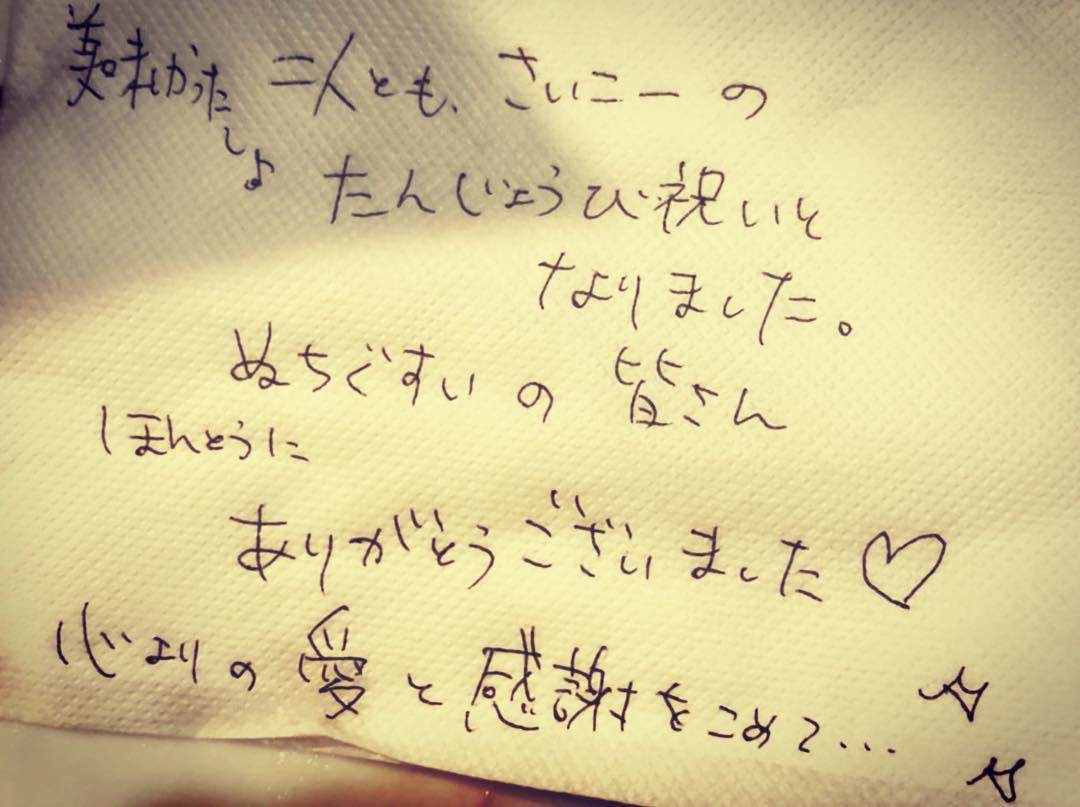 美味かった 二人とも、さいこーの
しょ たんじょうび祝いと
なりました。
ぬちぐすいの 皆さん
ほんとうに
ありがとうございました♡
心よりの愛と感謝をこめて...